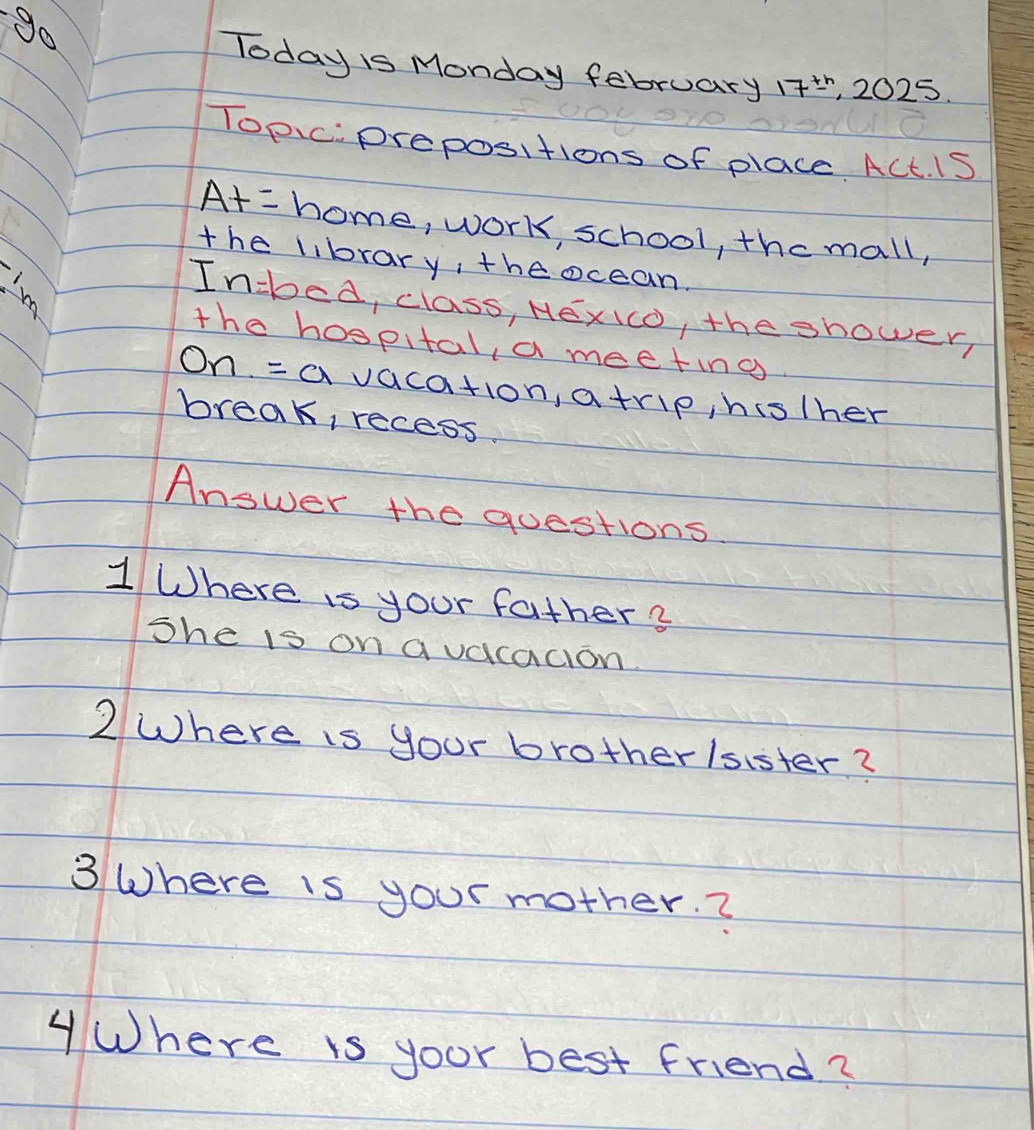 go
Today is Monday february 17th, 2025.
Topic: prepositions of place. Act.15
At = home, work, school, the mall,
the library, the ocean.
In = bed, class, México, the shower,
the hospital, a meeting
On = a vacation, a trip, his/her
break, recess.
Answer the questions.
1 Where is your father?
She is on a vacacion.
2 Where is your brother/sister.?
3 Where is your mother.?
4 Where is your best friend.?